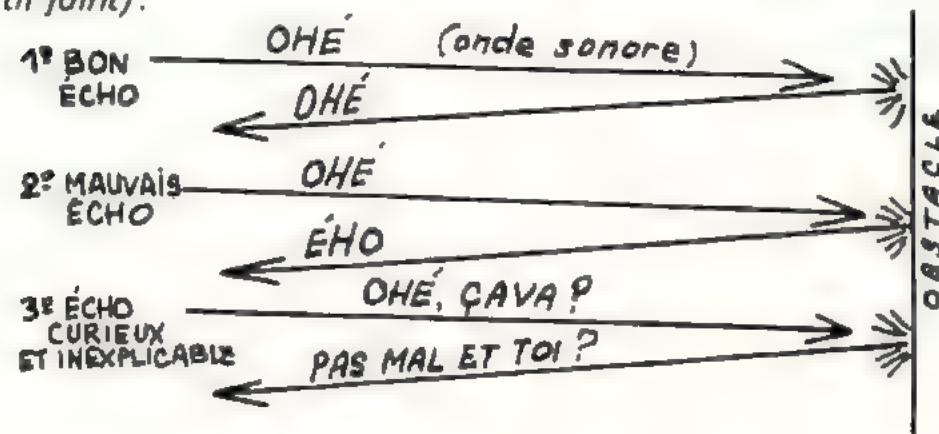 joint).
1º BON
ÉCHO
OHÉ (onde sonore)
OHÉ
2º MAUVAIS
ÉCHO
OHÉ
ÉHO
3º ÉCHO
CURIEUX
ET INEXPLICABLE
OHÉ, ÇAVA ?
PAS MAL ET TOI ?
OBSTACLE